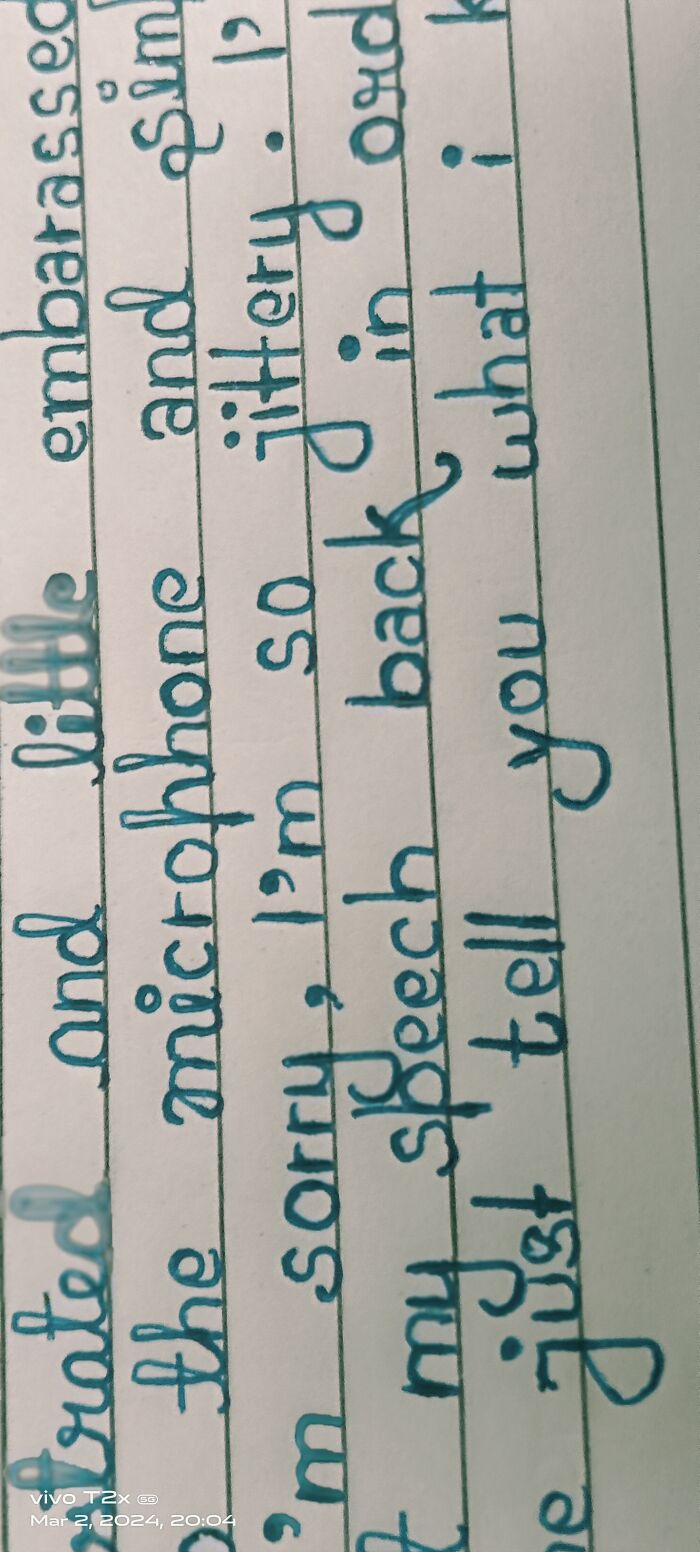 strated and little embarassed
the microphone and sim
'm sorry, I'm so jittery. I'
my speech back in ord
just tell you what i k
vivo T2x 5G
Mar 2, 2024, 20:04